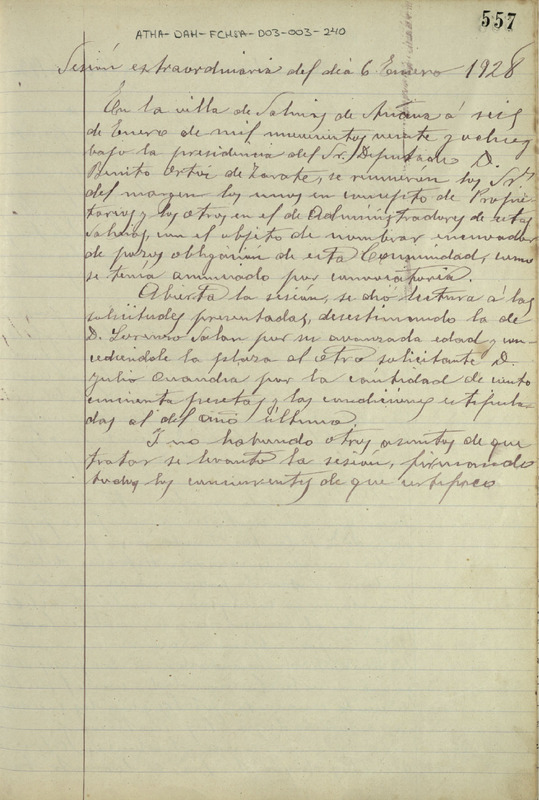 557
ATHA-DAH-FCHSA-D03-003-240
Sesión extraordinaria del día 6 Enero 1928
En la villa de Salinas de Añana á seis
de Enero de mil novecientos veinte y ocho y
bajo la presidencia del Sr. Diputado D.
Benito Ortiz de Zarate, se reunieron los Srs
del margen los unos en concepto de Propie-
tarios y los otros en el de Administradores de estas
Salinas, con el objeto de nombrar
de pozos obligación de esta Comunidad, como
se tenía anunciado por convocatoria.
Abierta la sesión, se dió lectura á las
solicitudes presentadas, desestimando la de
D. Lorenzo Salan por su avanzada edad y con-
cediendole la plaza al otro solicitante D.
Julio por la cantidad de ciento
cincuenta pesetas y las condiciones estipula-
das al del año último.
Y no habiendo otros asuntos de que
tratar se levanto la sesión, firmando
todos los concurrentes de que certifico